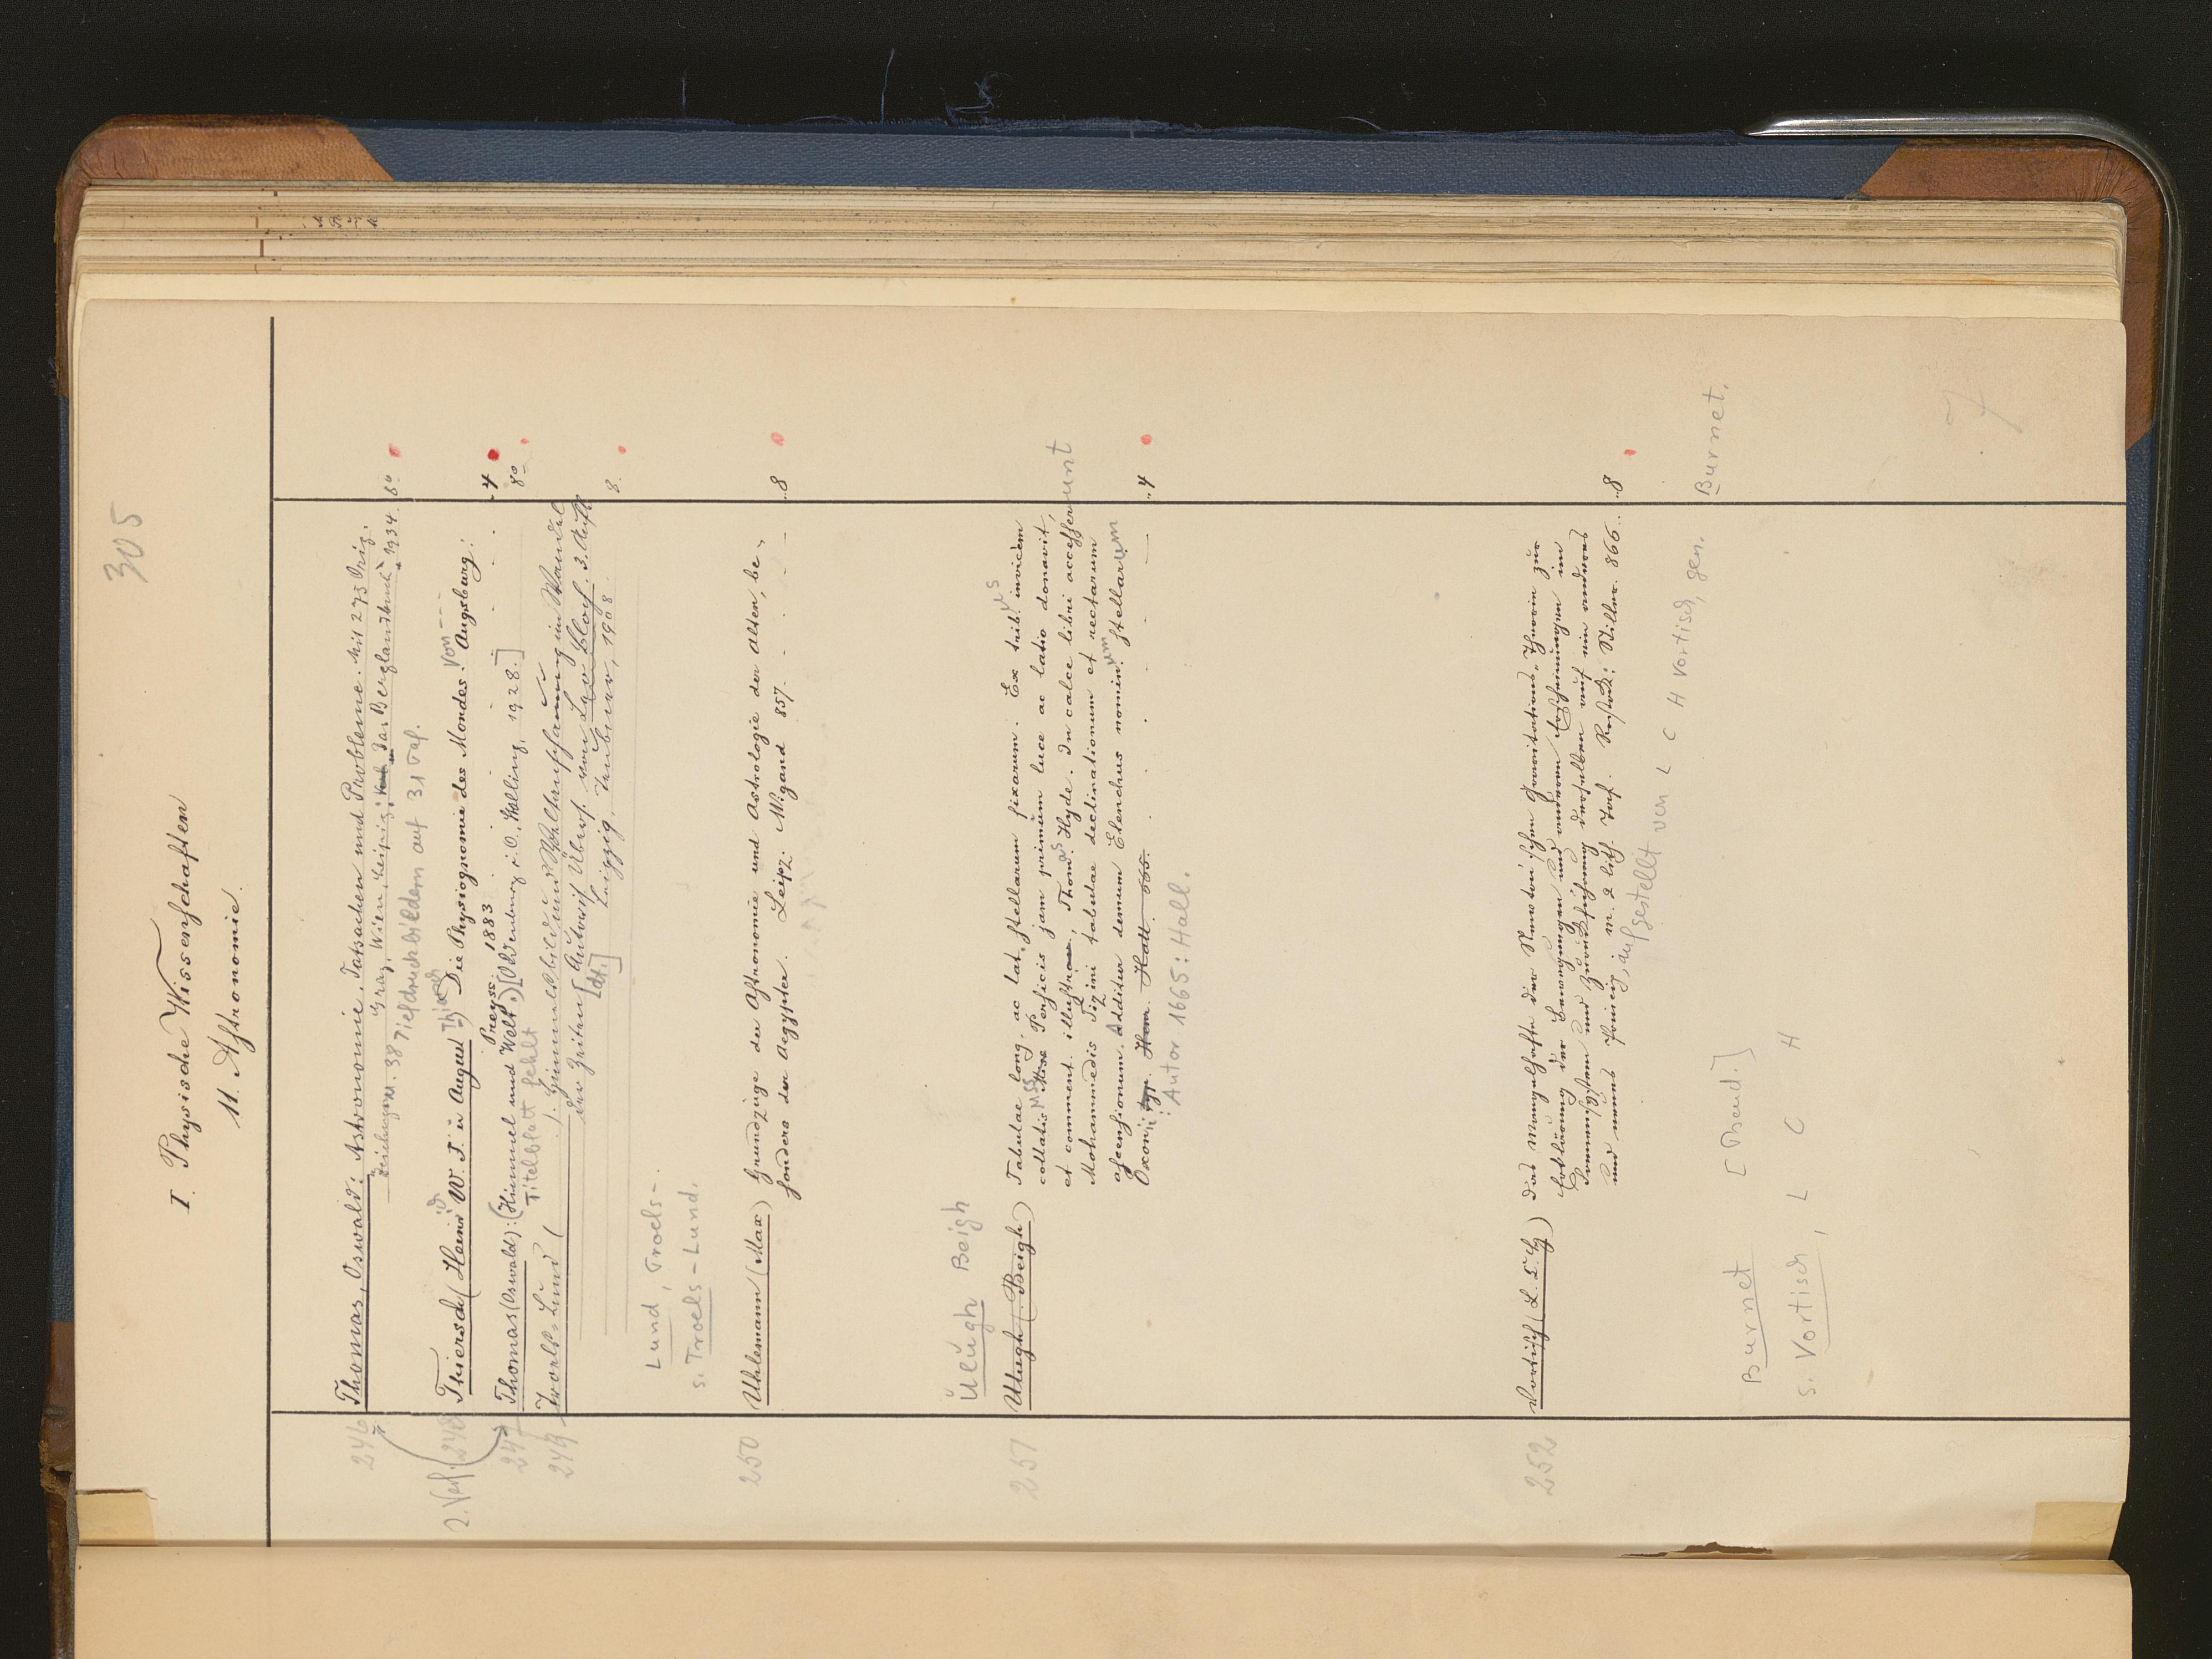 305
I. Physische Wissenschaften
11. Astronomie.
246 Thomas, Oswald: Astronomie. Tatsachen und Probleme. Mit 273 Orig.
Zeichngen. Graz, Wien, Leipzig: Das Berglandbuch 1934. 8°
38 Tiefdruckbildern auf 31 Taf.
2. Verf. 248 Thiersch (Heinrich W. J. u. August Thiersch) Die Physiognomie des Mondes. Von --- Augsburg:
Preyss. 1883 . . . . 4
247 Thomas (Oswald): (Himmel und Welt.) [Oldenburg i. O., Stalling, 1928.] 8°
Titelblatt fehlt
249 Troels-Lund ( ). Himmelsbild und Weltanschauung im Wandel
der Zeiten [dt.] Autoris. Übers. von Leo Bloch. 3. Aufl.
Leipzig, Teubner, 1908. 8.
Lund, Troels-.
s. Troels-Lund.
250 Uhlemann (Max) Grundzüge der Astronomie und Astrologie der Alten, be-
sonders der Aegypter. Leipz: Wigand 857. - . - - ..8
Ulugh Beigh
251 Ulugh (Beigh) Tabulae long. ac lat. stellarum fixarum. Ex tribus invicem
collatis MSS Persicis jam primum luce ac latio donavit,
et comment. illustr., Thomas Hyde. In calce libri accesserunt
Mohammedis Tizini tabulae declinationum et rectarum
ascensionum. Additur demum Elenchus nominum stellarum
Oxonii typ. Henr. Hall 665. . . . . — ..4
: Autor 1665: Hall.
252 Vortisch (L. C. H.) Das Mangelhafte der Newton'schen Gravitations-Theorie zur
Erklärung der Bewegungen und anderen Erscheinungen im
Sonnensystem und Zurückführung derselben auf ein anderes
und neues Princip; m. 2 lith. Taf. Rostock: Stiller. 866. ..8
, aufgestellt von L C H Vortisch, gen. Burnet.
Burnet [Pseud.]
s. Vortisch, L C H
7